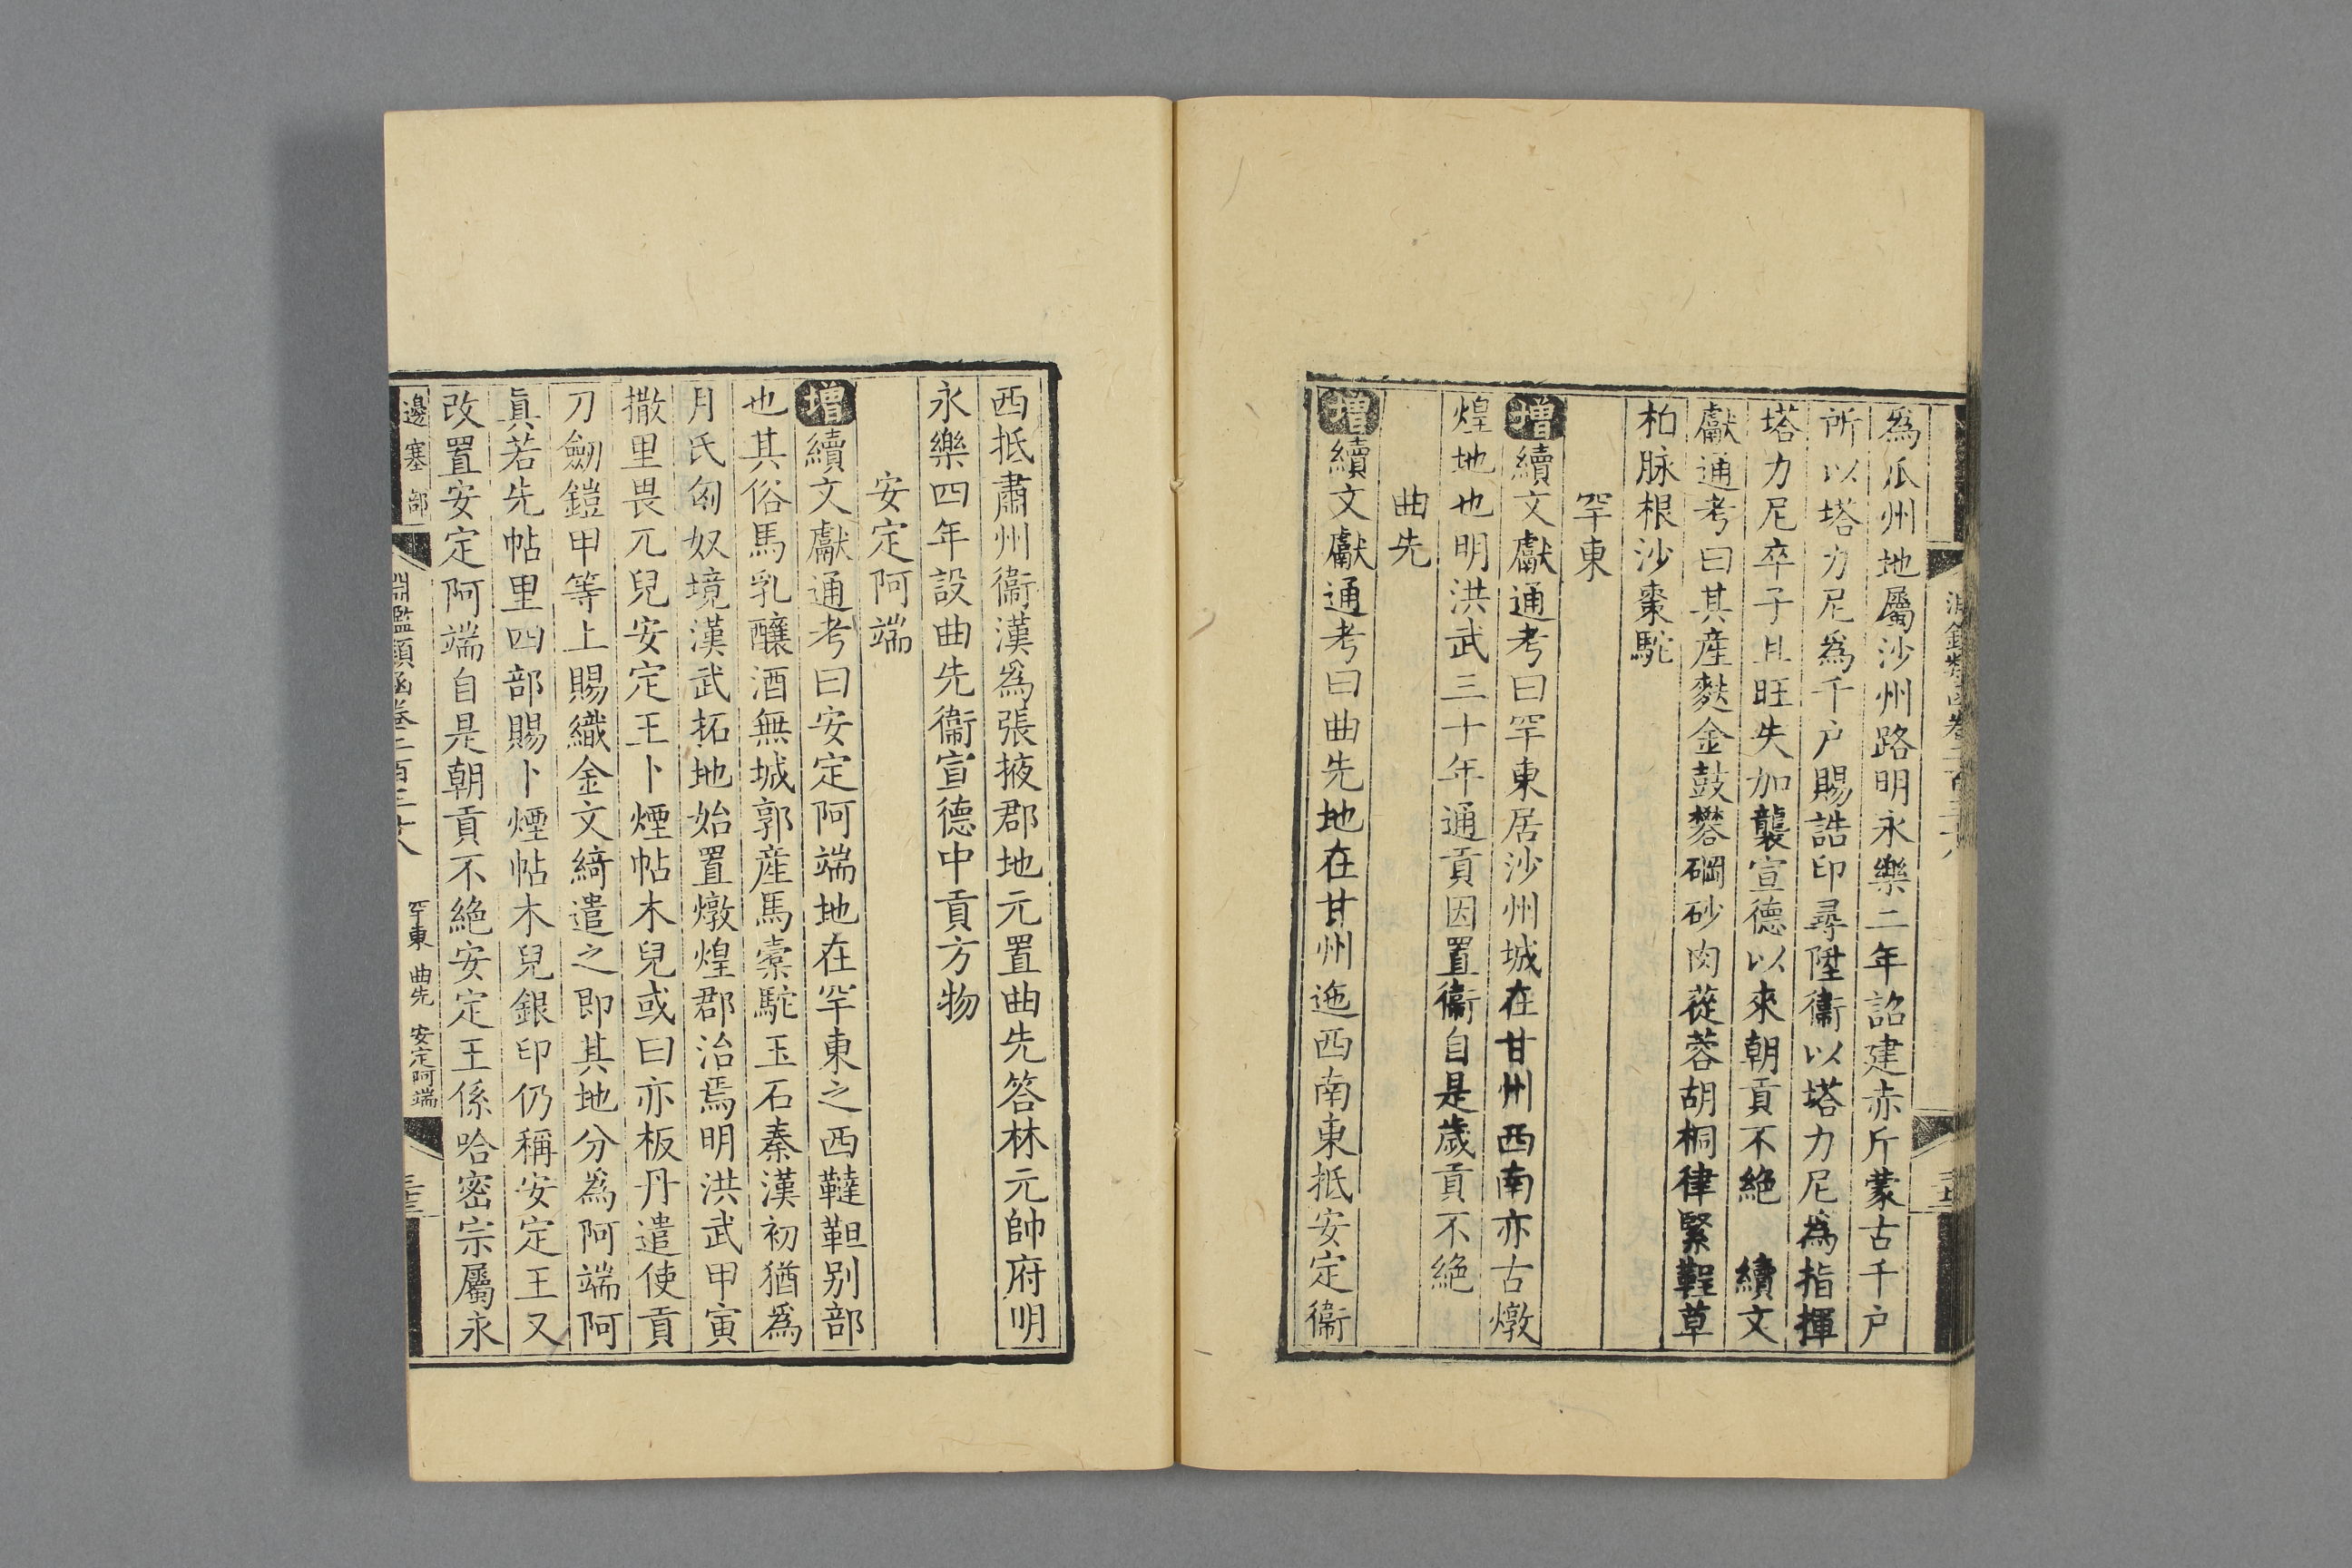 爲瓜州地屬沙州路明永樂二年詔建赤斤蒙古千户
所以塔力尼爲千户賜誥印尋陞衞以塔力尼爲指揮
塔力尼卒子且旺失加襲宣德以來朝貢不絶　續文
獻通考曰其産麩金鼓礬碙砂肉蓯蓉胡桐律緊鞓草
柏脉根沙棗駝
罕東
增續文獻通考曰罕東居沙州城在甘州西南亦古燉
煌地也明洪武三十年通貢因置衞自是歲貢不絶
曲先
增續文獻通考曰曲先地在甘州迤西南東抵安定衞
西抵肅州衞漢爲張掖郡地元置曲先答林元帥府明
永樂四年設曲先衞宣德中貢方物
安定阿端
增續文獻通考曰安定阿端地在罕東之西韃靼别部
也其俗馬乳釀酒無城郭産馬槖駝玉石秦漢初猶爲
月氏匈奴境漢武拓地始置燉煌郡治焉明洪武甲寅
撒里畏兀兒安定王卜煙帖木兒或曰亦板丹遣使貢
刀劒鎧甲等上賜織金文綺遣之即其地分爲阿端阿
眞若先帖里四部賜卜煙帖木兒銀印仍稱安定王又
改置安定阿端自是朝貢不絶安定王係哈密宗屬永
邊塞部　淵鑑類函卷二百三十八　罕東　曲先　安定阿端　三十三